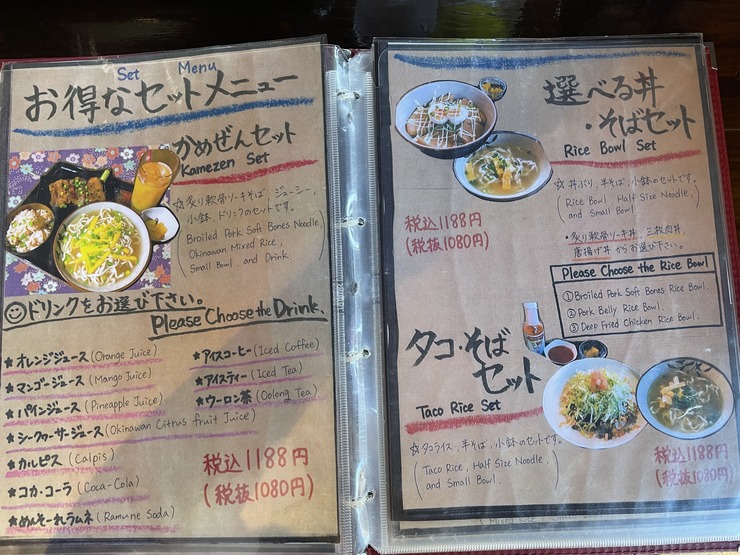 Set Menu
お得なセットメニュー
かめぜんセット
Kamezen Set
☆炙り軟骨ソーキそば、ジューシー、
小鉢、ドリンクのセットです。
(Broiled Pork Soft Bones Noodle,
Okinawan Mixed Rice,
Small Bowl, and Drink.)
ドリンクをお選び下さい。
Please Choose the Drink.
★オレンジジュース(Orange Juice)
★マンゴージュース(Mango Juice)
★パインジュース(Pineapple Juice)
★シークヮーサージュース(Okinawan Citrus fruit Juice)
★カルピス(Calpis)
★コカ・コーラ(Coca-Cola)
★めんそーれラムネ(Ramune Soda)
★アイスコーヒー(Iced Coffee)
★アイスティー(Iced Tea)
★ウーロン茶(Oolong Tea)
税込1188円
(税抜1080円)
選べる丼
・そばセット
Rice Bowl Set
☆丼ぶり、半そば、小鉢のセットです。
(Rice Bowl, Half Size Noodle,
and Small Bowl.)
・炙り軟骨ソーキ丼、三枚肉丼、
唐揚げ丼からお選び下さい。
税込1188円
(税抜1080円)
Please Choose the Rice Bowl
①Broiled Pork Soft Bones Rice Bowl.
②Pork Belly Rice Bowl.
③Deep Fried Chicken Rice Bowl.
タコ・そば
セット
Taco Rice Set
☆タコライス、半そば、小鉢のセットです。
(Taco Rice, Half Size Noodle,
and Small Bowl.)
税込1188円
(税抜1080円)